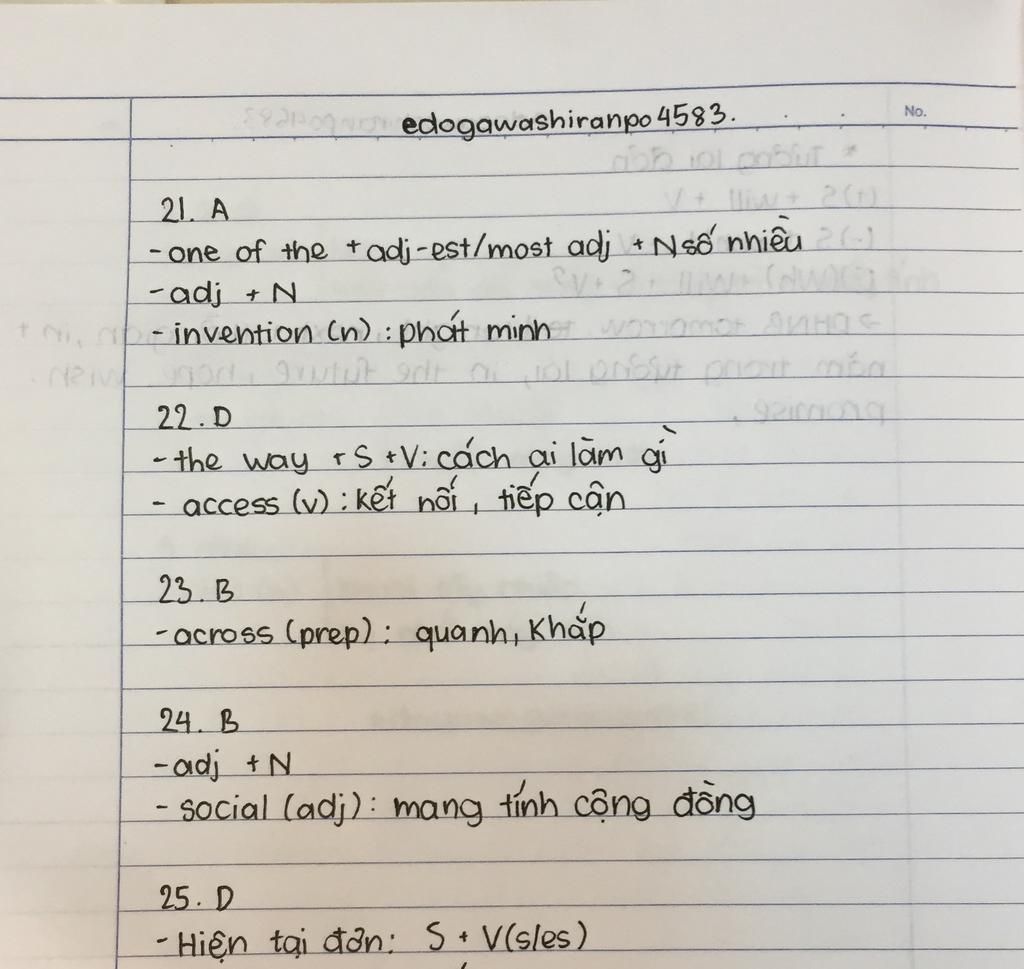 No.
edogawashiranpo4583.
21. A
- one of the + adj-est/most adj + N số nhiều
- adj + N
- invention (n) : phát minh
22. D
- the way + S + V: cách ai làm gì
- access (v) : kết nối, tiếp cận
23. B
- across (prep) : quanh, khắp
24. B
- adj + N
- social (adj) : mang tính cộng đồng
25. D
- Hiện tại đơn: S + V(s/es)